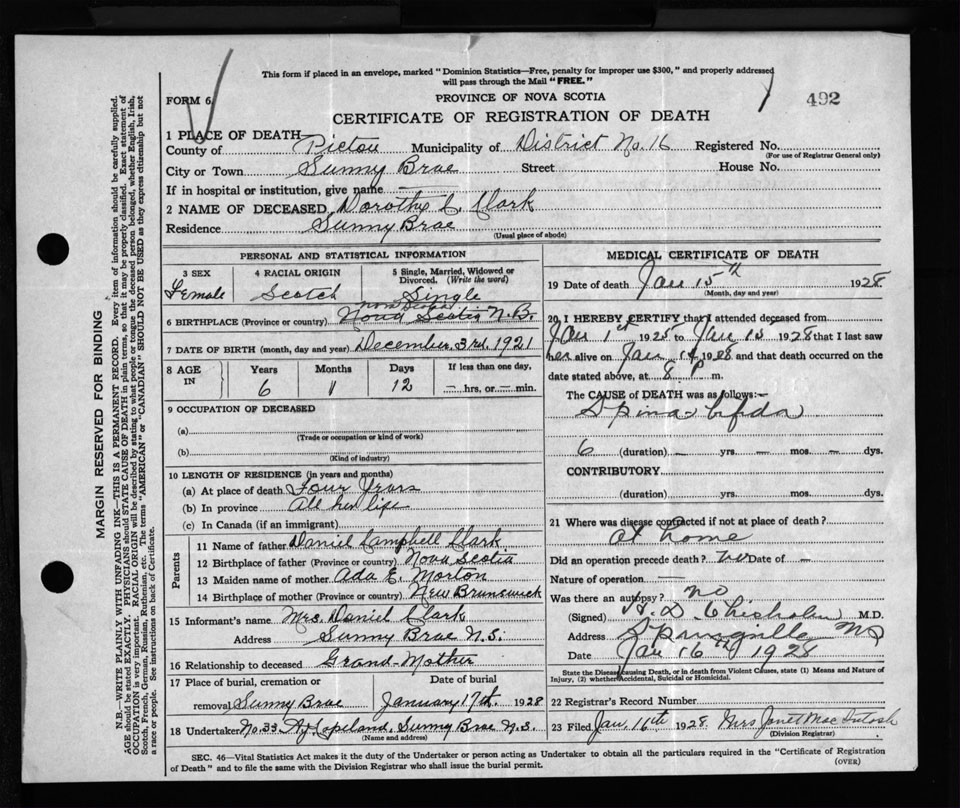 This form if placed in an envelope, marked "Dominion Statistics—Free, penalty for improper use $300," and properly addressed
will pass through the Mail "FREE."
FORM 6.
PROVINCE OF NOVA SCOTIA
492
CERTIFICATE OF REGISTRATION OF DEATH
1 PLACE OF DEATH
County of Pictou Municipality of District No. 16 Registered No.
(For use of Registrar General only)
City or Town Sunny Brae Street House No.
If in hospital or institution, give name —
2 NAME OF DECEASED Dorothy C. Clark
Residence Sunny Brae
(Usual place of abode)
PERSONAL AND STATISTICAL INFORMATION
3 SEX Female
4 RACIAL ORIGIN Scotch
5 Single, Married, Widowed or
Divorced. (Write the word)
Single
6 BIRTHPLACE (Province or country) Nova Scotia N.B.
7 DATE OF BIRTH (month, day and year) December 3rd 1921
8 AGE IN Years 6 Months 1 Days 12 If less than one day,
— hrs. or — min.
9 OCCUPATION OF DECEASED
(a)
(Trade or occupation or kind of work)
(b)
(Kind of industry)
10 LENGTH OF RESIDENCE (in years and months)
(a) At place of death Four Years
(b) In province All her life
(c) In Canada (if an immigrant)
Parents
11 Name of father Daniel Campbell Clark
12 Birthplace of father (Province or country) Nova Scotia
13 Maiden name of mother Ada E. Morton
14 Birthplace of mother (Province or country) New Brunswick
15 Informant's name Mrs. Daniel Clark
Address Sunny Brae N.S.
16 Relationship to deceased Grand Mother
17 Place of burial, cremation or
removal Sunny Brae
Date of burial
January 17th 1928
18 Undertaker No. 33 A.J. Copeland, Sunny Brae N.S.
(Name and address)
MEDICAL CERTIFICATE OF DEATH
19 Date of death Jan 15th 1928
(Month, day and year)
20 I HEREBY CERTIFY that I attended deceased from
Jan 1st 1925 Jan 15 1928 that I last saw
her alive on Jan 14 1928 and that death occurred on the
date stated above, at 8 P m.
The CAUSE of DEATH was as follows:—
Spina bifida
6 (duration) — yrs. — mos. — dys.
CONTRIBUTORY
(duration) yrs. mos. dys.
21 Where was disease contracted if not at place of death?
at home
Did an operation precede death? no Date of —
Nature of operation —
Was there an autopsy? no
(Signed) H. D. Chisholm M.D.
Address Springville NS
Date Jan 16th 1928
State the Disease causing Death, or in death from Violent Causes, state (1) Means and Nature of
Injury, (2) whether Accidental, Suicidal or Homicidal.
22 Registrar's Record Number
23 Filed Jan. 16th 1928 Mrs Janet MacIntosh
(Division Registrar)
SEC. 46—Vital Statistics Act makes it the duty of the Undertaker or person acting as Undertaker to obtain all the particulars required in the "Certificate of Registration
of Death" and to file the same with the Division Registrar who shall issue the burial permit.
(OVER)
MARGIN RESERVED FOR BINDING
N.B.—WRITE PLAINLY, WITH UNFADING INK—THIS IS A PERMANENT RECORD. Every item of information should be carefully supplied.
AGE should be stated EXACTLY, PHYSICIANS should STATE CAUSE OF DEATH in plain terms, so that it may be properly classified. Exact statement of
OCCUPATION is very important. RACIAL ORIGIN will be described by stating to what people or tongue the deceased person belonged, whether English, Irish,
Scotch, French, German, Russian, Ruthenian, etc. The terms "AMERICAN" or "CANADIAN" SHOULD NOT BE USED as they express citizenship but not
a race or people. See instructions on back of Certificate.